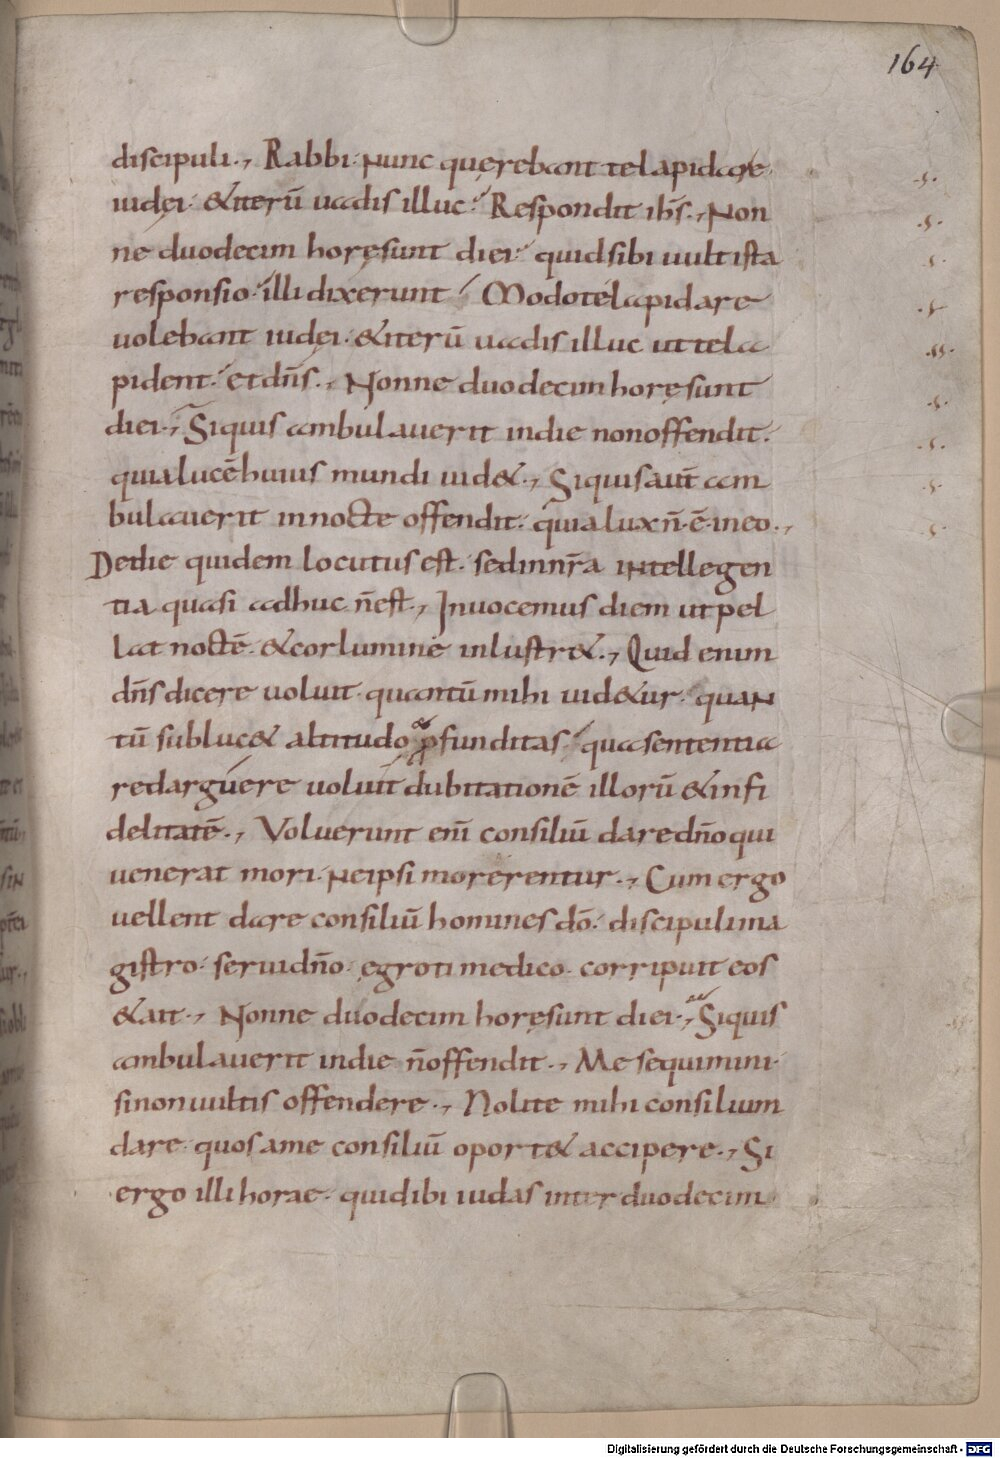 164
discipuli., Rabbi· Nunc quęrebant te lapidare
iudęi· & iterū uadis illuc? Respondit ihs̄., Non
ne duodecim horę sunt diei· quid sibi uult ista
responsio? illi dixerunt? Modo te lapidare
uolebant iudęi· & iterū uadis illuc ut te la
pident? et dn̄s., Nonne duodecim horę sunt
diei., Si quis ambulauerit in die non offendit·
quia lucē huius mundi uid&., Si quis aūt am
bulauerit in nocte offendit· quia lux n̄· ē· in eo.,
De die quidem locutus est· sed in nr̄a intellegen
tia quasi adhuc n̄ est., Inuocemus diem ut pel
lat noctē· & cor lumine inlustr&., Quid enim
dn̄s dicere uoluit· quantū mihi uid&ur· quan
tū subluc& altitudo ꝓfunditas· qua sententia
redarguere uoluit dubitationē illorū & infi
delitatē., Voluerunt enī consiliū dare dn̄o qui
uenerat mori· Ne ipsi morerentur., Cum ergo
uellent dare consiliū homines dō· discipuli ma
gistro· serui dn̄o· ęgroti medico· corripuit eos
& ait., Nonne duodecim horę sunt diei., Si quis
ambulauerit in die n̄ offendit., Me sequimini·
si non uultis offendere., Nolite mihi consilium
dare· quos a me consiliū oport& accipere., Si
ergo illi horae· quid ibi iudas inter duodecim
Digitalisierung gefördert durch die Deutsche Forschungsgemeinschaft - DFG